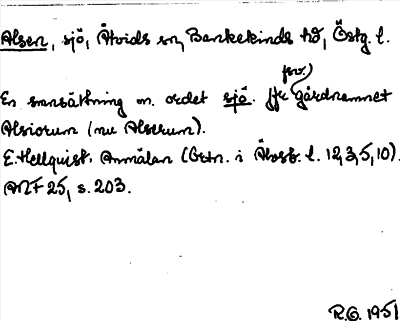 Alsen, sjö, Åtvids sn, Bankekinds hd, Östg. l.
En smnsättning m. ordet sjö. Jfr fsv. gårdnamnet
Alsiorum (nu Alserum).
E. Hellquist. Anmälan (Ortn. i Älvsb. l. 12, 3, 5, 10).
ANF 25, s. 203.
R.G. 1951